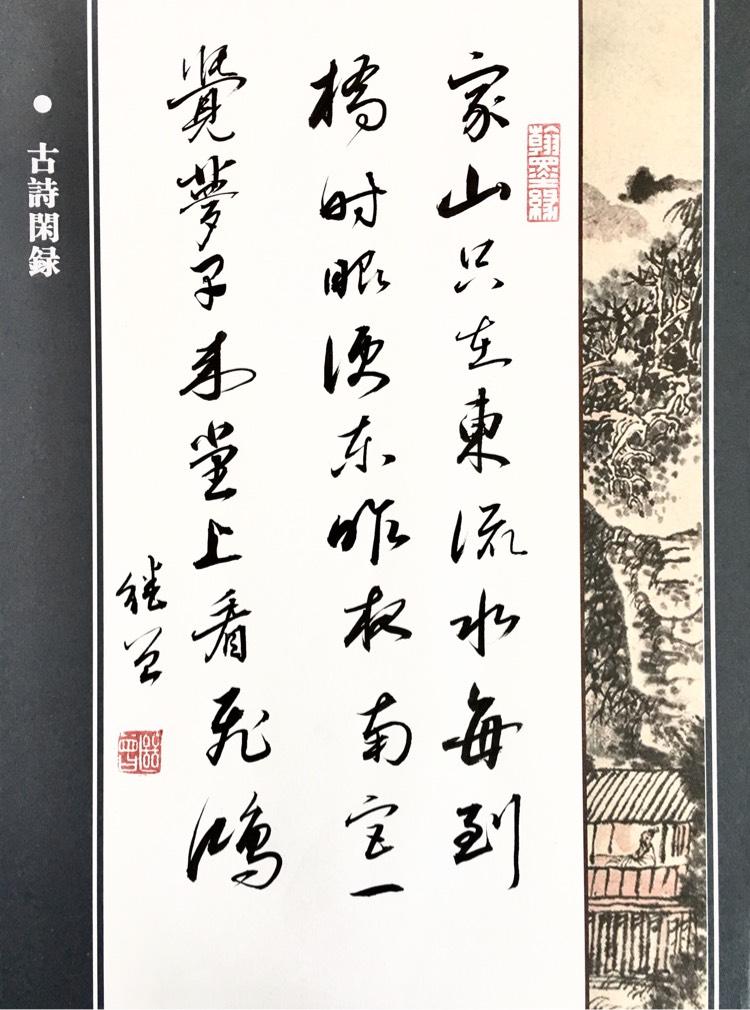 翰墨缘
家山只在東流水每到
橋时眼便东昨夜南窗一
覺夢子来堂上看飛鴻
继曾
古詩閑録